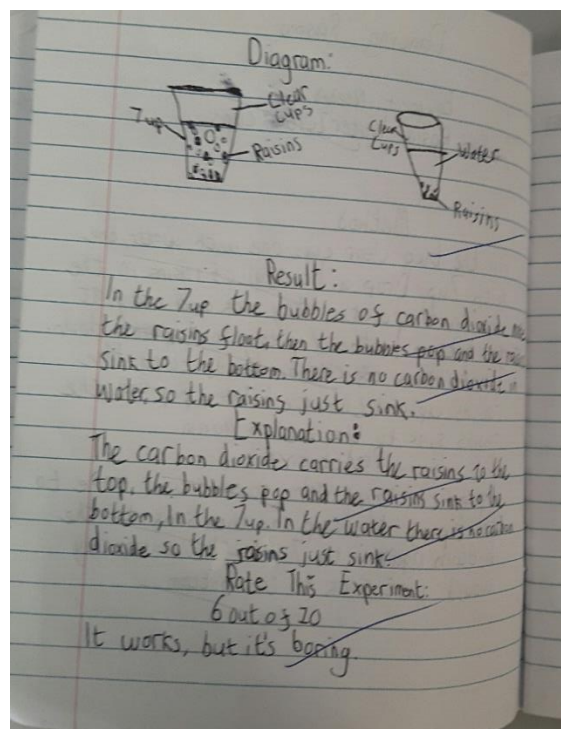 Diagram:
Clear
cups
7up
Raisins
Clear
Cups
Water
Raisins
Result:
In the 7up the bubbles of carbon dioxide
the raisins float, then the bubbles pop and the
sink to the bottom. There is no carbon dioxide in
Water, so the raisins just sink.
Explanation:
The carbon dioxide carries the raisins to the
top. the bubbles pop and the raisins sink to the
bottom, In the 7up. In the water there is no carbon
dioxide so the raisins just sink.
Rate This Experiment:
6 out of 20
It works, but it's boring.